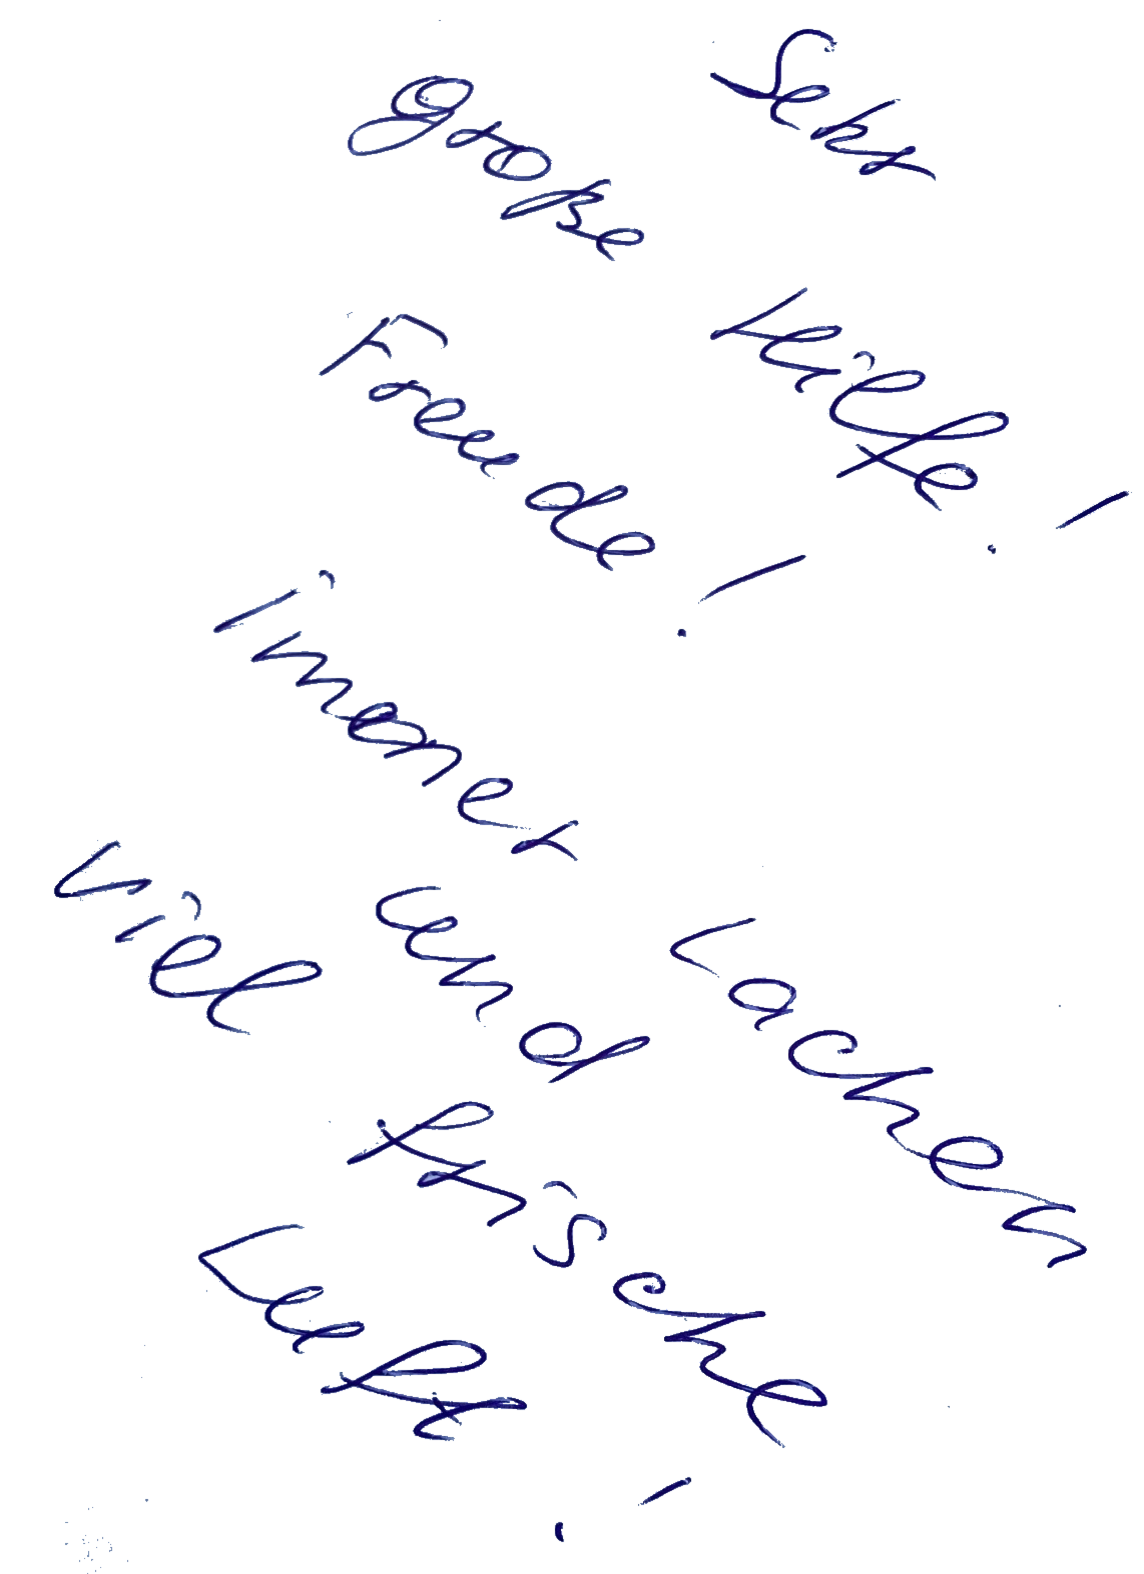 Sehr
Große Hilfe!
Freude!
Immer Lachen
und
Viel frische
Luft!